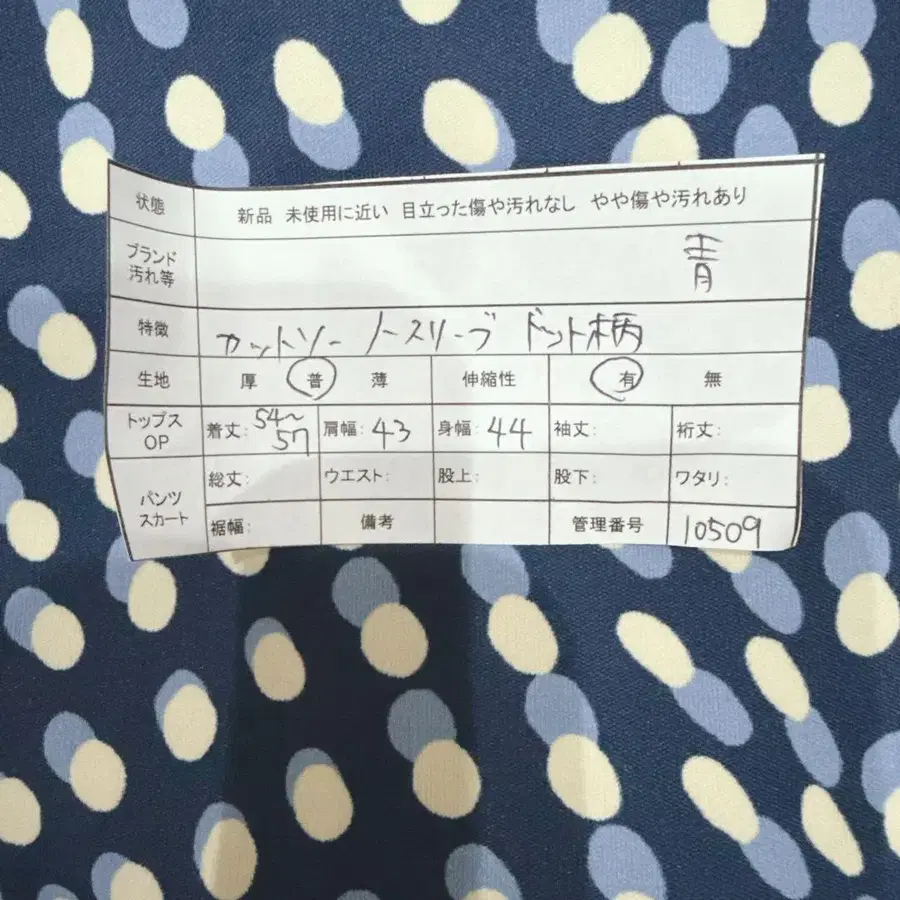 状態 新品 未使用に近い 目立った傷や汚れなし やや傷や汚れあり
ブランド
汚れ等 青
特徴 カットソー ノースリーブ ドット柄
生地 厚 普 薄 伸縮性 有 無
トップス
OP 着丈: 54～57 肩幅: 43 身幅: 44 袖丈: 裄丈:
パンツ
スカート 総丈: ウエスト: 股上: 股下: ワタリ:
裾幅: 備考 管理番号 10509